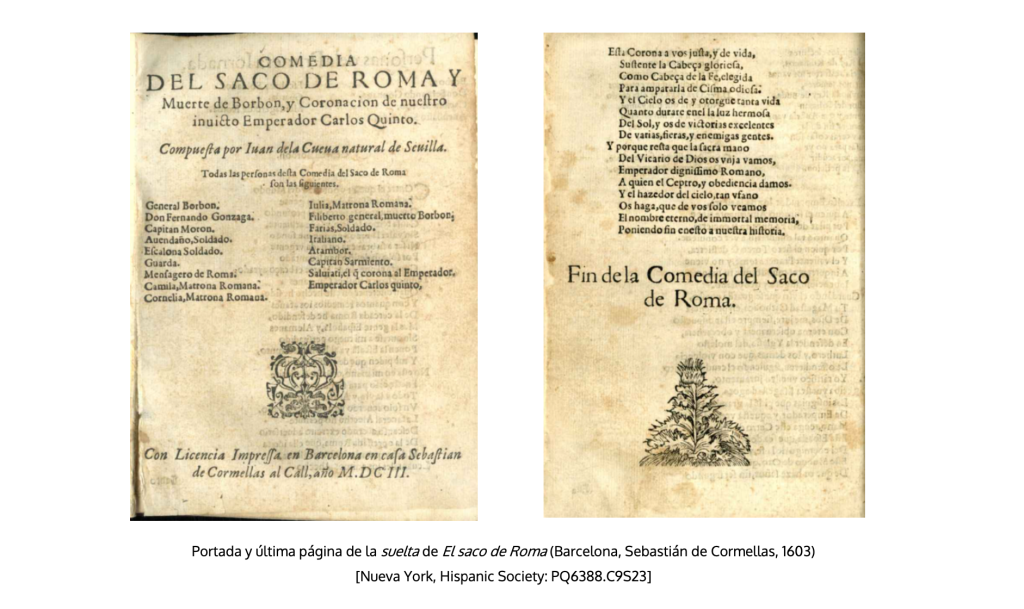 COMEDIA
DEL SACO DE ROMA Y
Muerte de Borbon, y Coronacion de nuestro
inuicto Emperador Carlos Quinto.
Compuesta por Iuan dela Cueua natural de Seuilla.
Todas las personas desta Comedia del Saco de Roma
son las siguientes.
General Borbon.
Don Fernando Gonzaga.
Capitan Moron.
Auendaño, Soldado.
Escalona Soldado.
Guarda.
Mensagero de Roma.
Camila, Matrona Romana.
Cornelia, Matrona Romana.
Iulia, Matrona Romana.
Filiberto general, muerto Borbon,
Farias, Soldado.
Italiano.
Atambor.
Capitan Sarmiento.
Saluiati, el q̃ corona al Emperador.
Emperador Carlos quinto,
Con Licencia Impressa en Barcelona en casa Sebastian
de Cormellas al Call, año M.DCIII.
Esta Corona a vos justa, y de vida,
Sustente la Cabeça gloriosa,
Como Cabeça de la Fe, elegida
Para ampararla de Cisma odiosa:
Y el Cielo os de y otorgue tanta vida
Quanto durare en el la luz hermosa
Del Sol, y os de victorias excelentes
De varias, fieras, y enemigas gentes.
Y porque resta que la sacra mano
Del Vicario de Dios os vnja vamos,
Emperador dignissimo Romano,
A quien el Ceptro, y obediencia damos.
Y el hazedor del cielo, tan vfano
Os haga, que de vos solo veamos
El nombre eterno, de immortal memoria,
Poniendo fin enesto a nuestra historia.
Fin de la Comedia del Saco
de Roma.
Portada y última página de la suelta de El saco de Roma (Barcelona, Sebastián de Cormellas, 1603)
[Nueva York, Hispanic Society: PQ6388.C9S23]